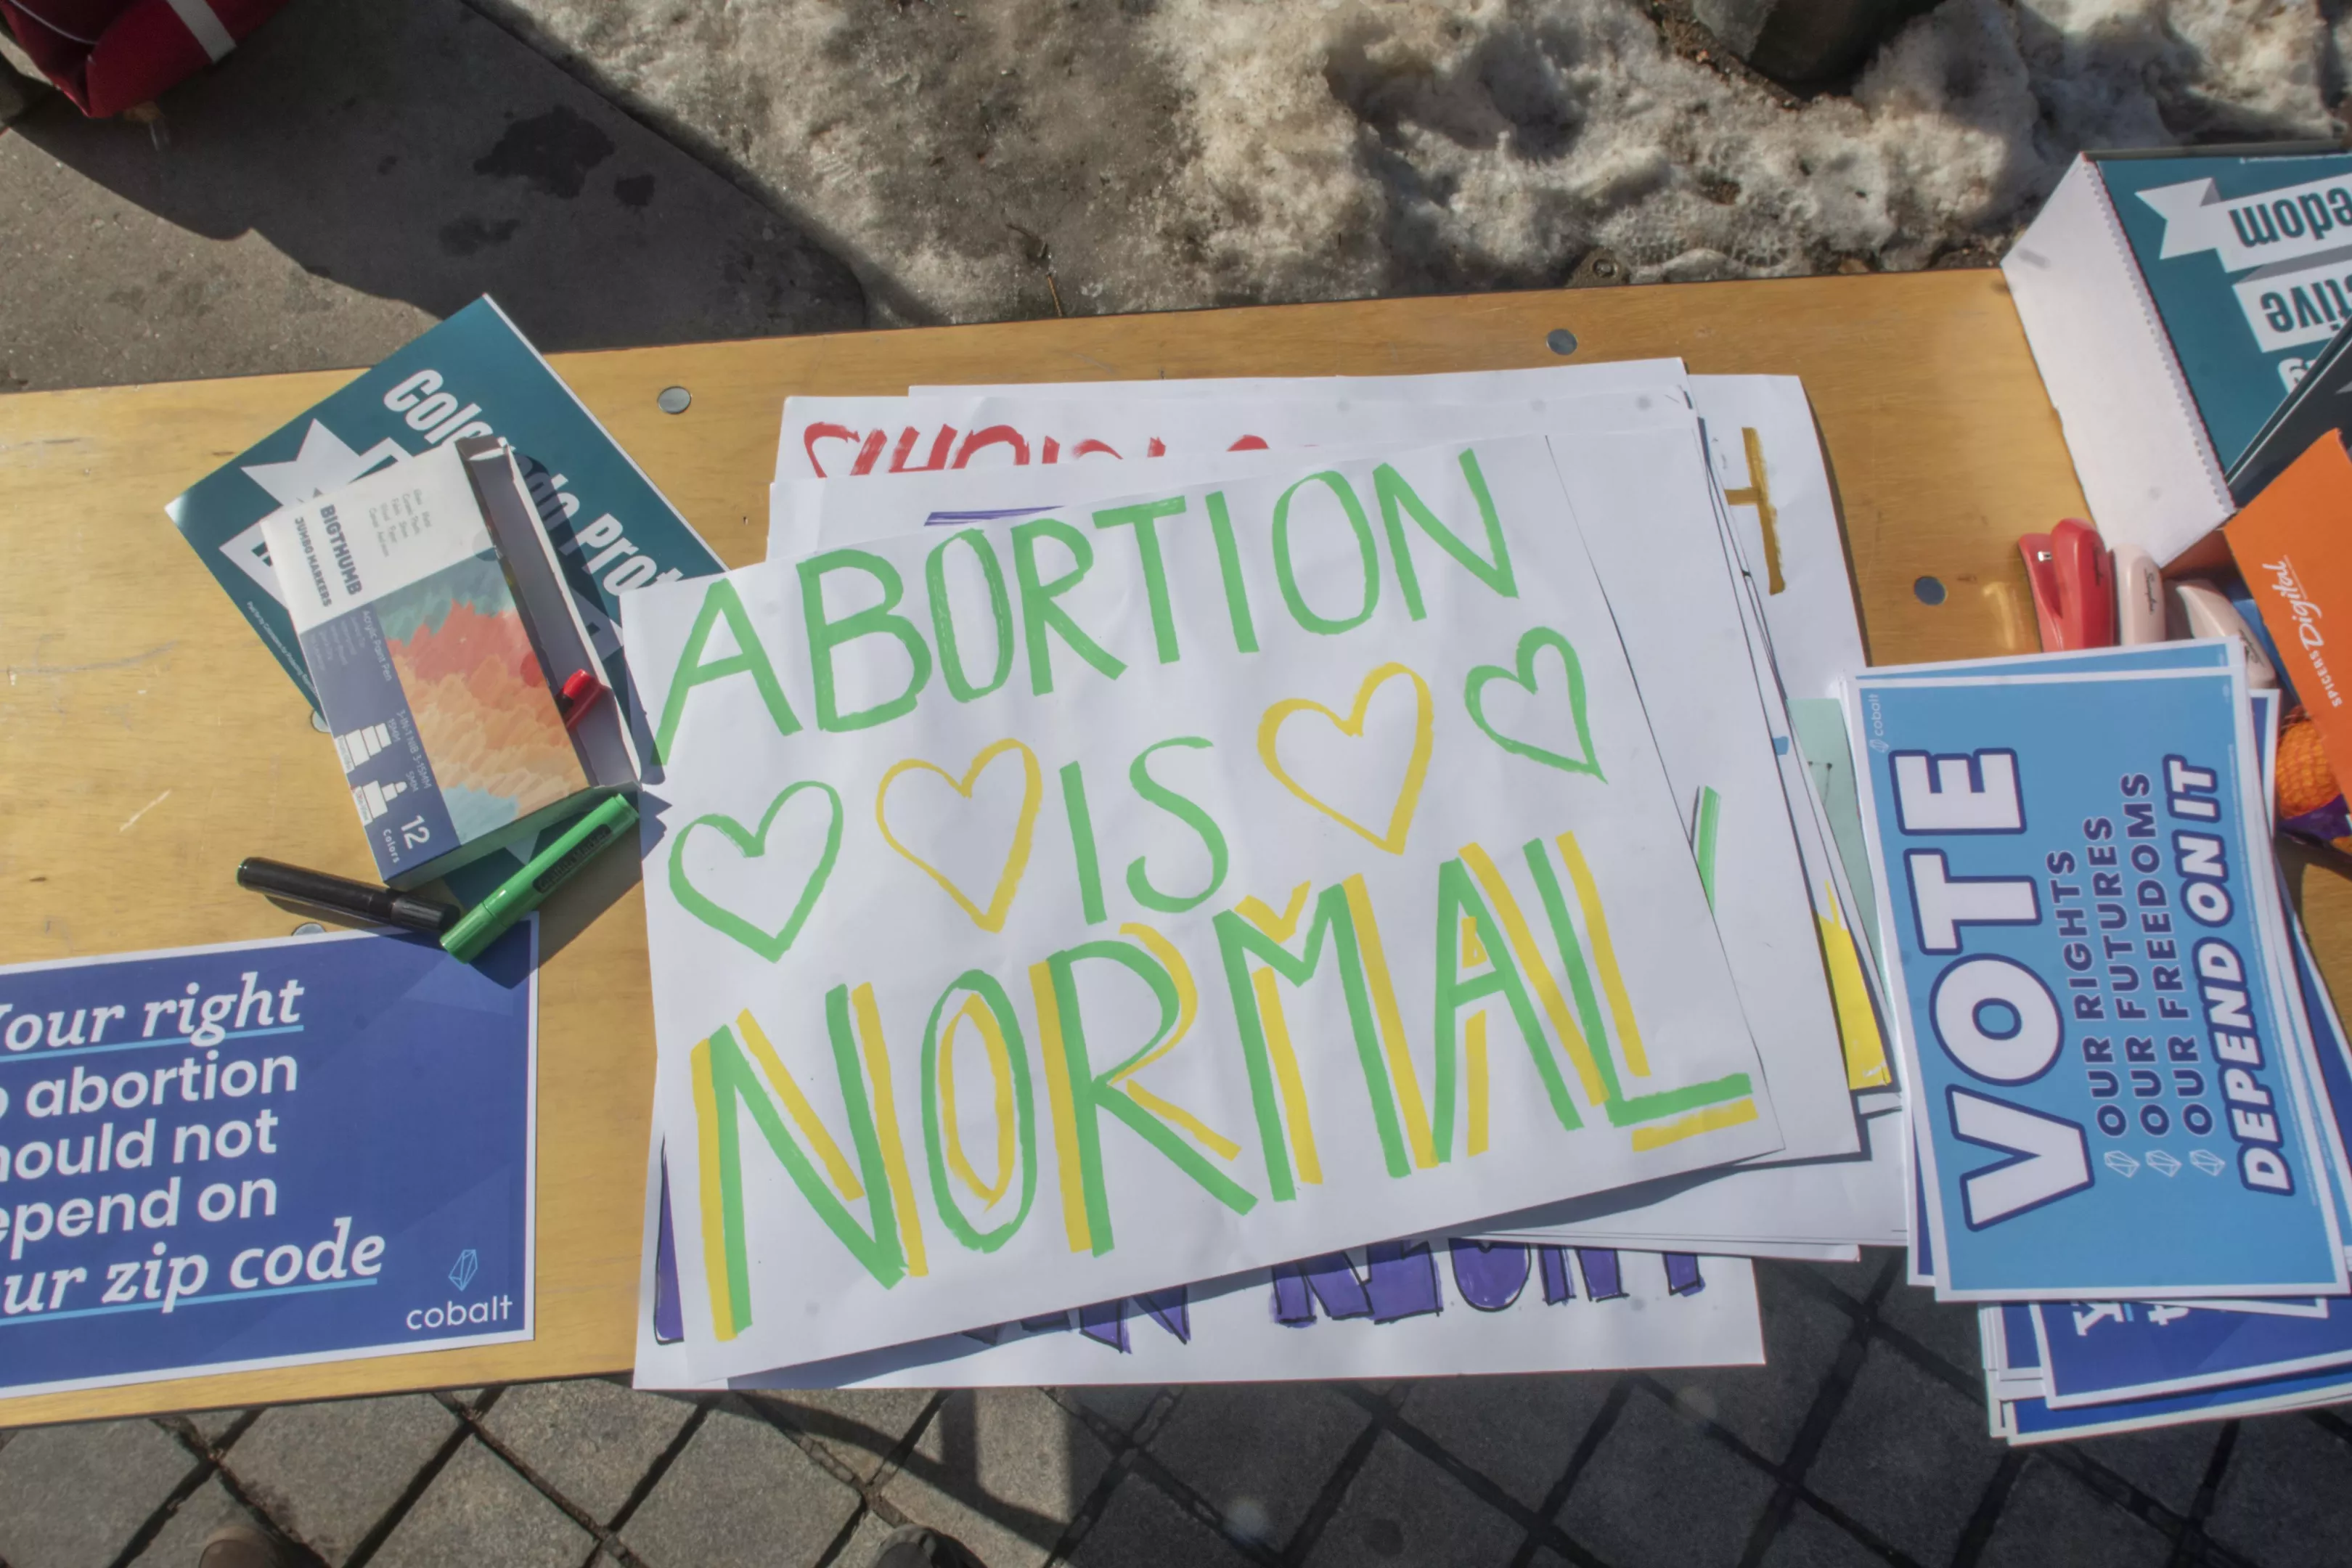 Colorado Prot
BIGTHUMB
JUMBO MARKERS
Acrylic Paint Pen
3-IN-1 NIB 3-15MM
15MM
5MM
12
Colors
ABORTION
IS
NORMAL
our right
abortion
ould not
epend on
ur zip code
cobalt
cobalt
VOTE
OUR RIGHTS
OUR FUTURES
OUR FREEDOMS
DEPEND ON IT
edom
tive
SPICERS Digital